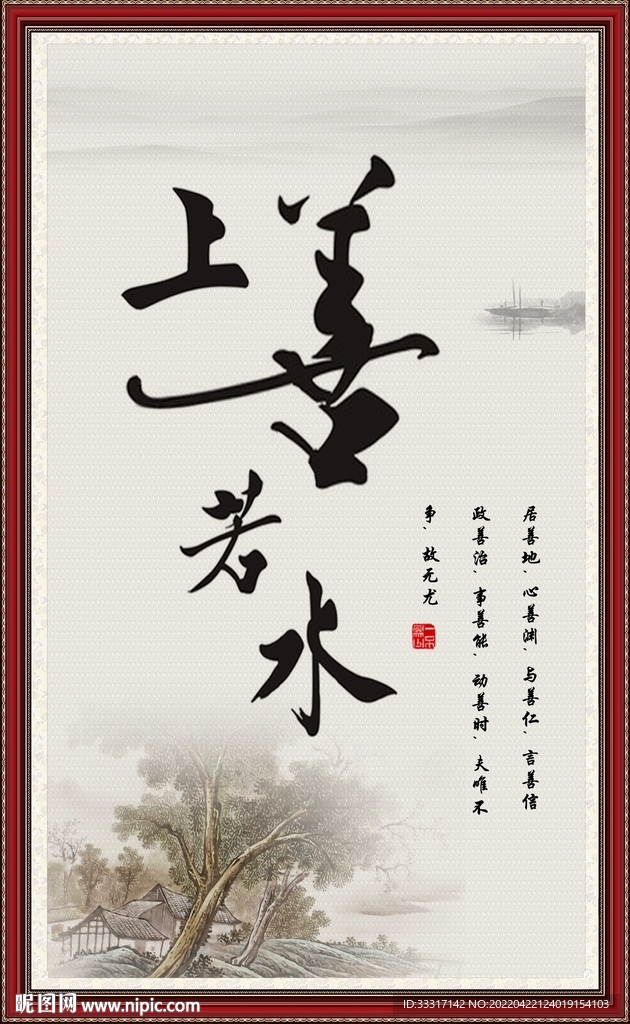 上善
若水
居善地、心善渊、与善仁、言善信
政善治、事善能、动善时、夫唯不
争、故无尤
昵图网 www.nipic.com
ID:33317142 NO:20220422124019154103